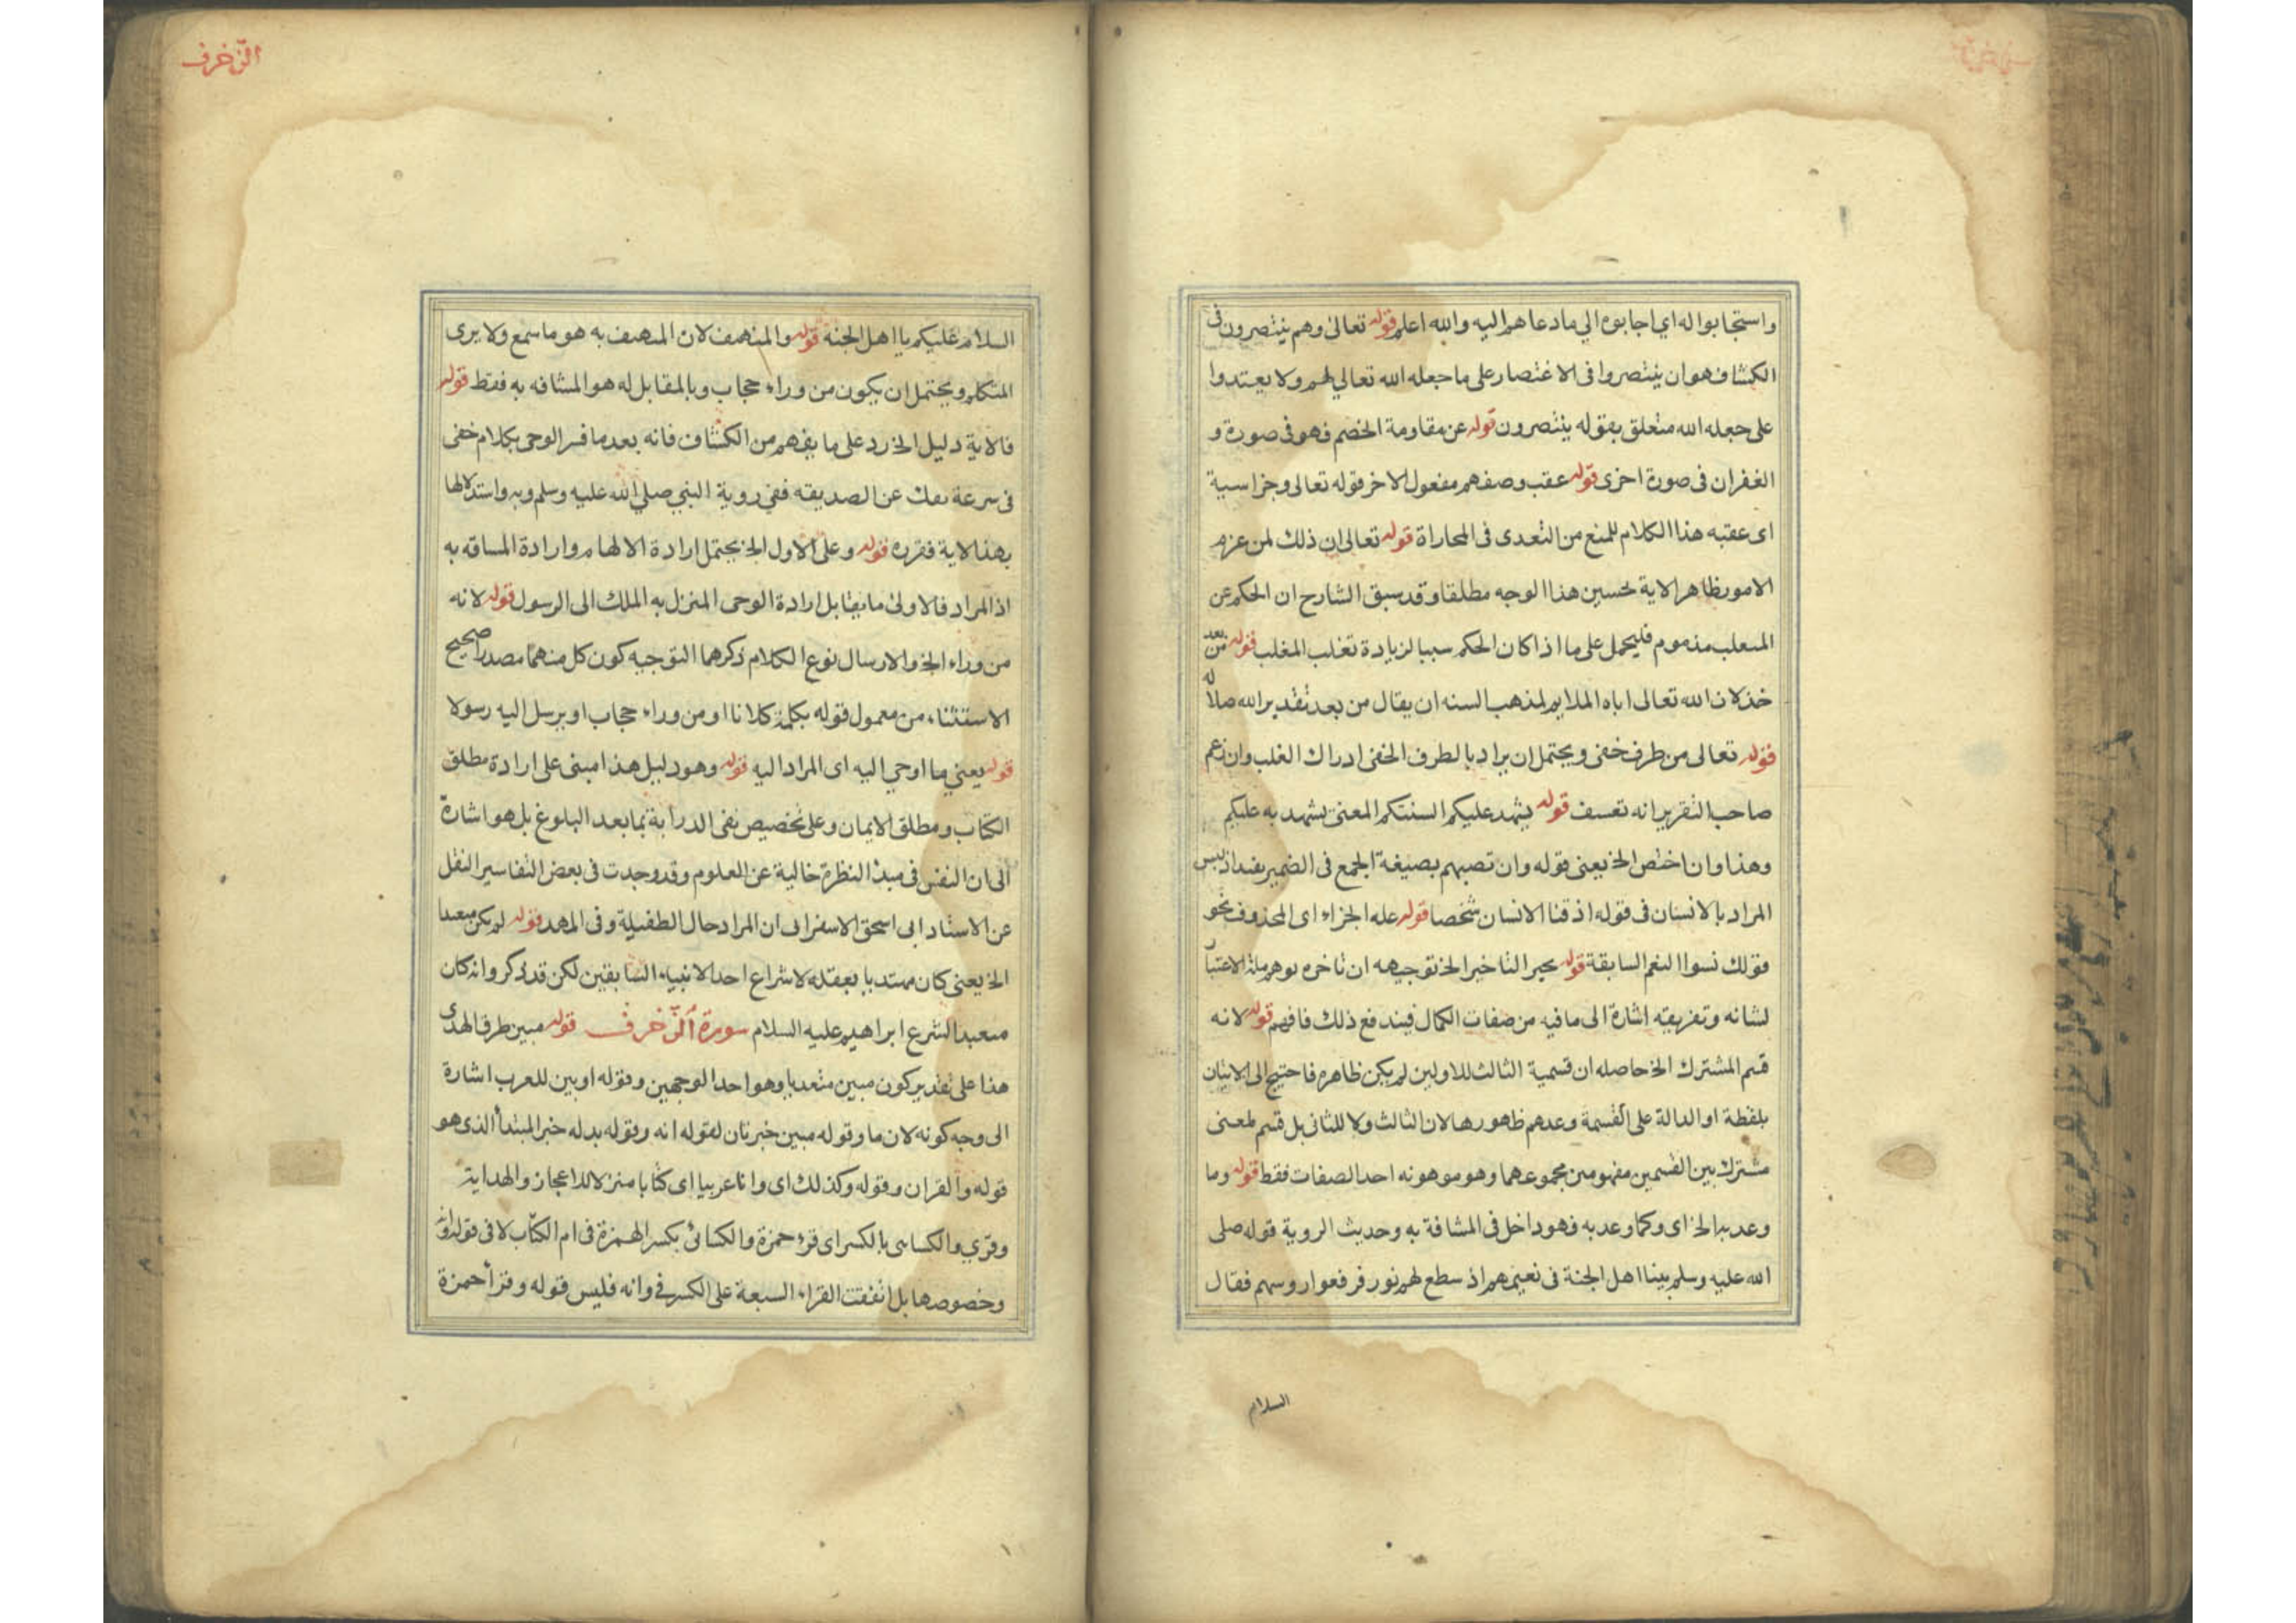 واستجابوا له اي اجابوه الي ما دعاهم اليه والله اعلم قوله تعالى وهم ينتصرون فى
الكشاف هو ان ينتصروا فى الاغتصار على ما جعله الله تعالي لهم ولا يعتدوا
على جعله الله متعلق بقوله ينتصرون قوله عن مقاومة الخصم فهو فى صورة و
الغفران فى صورة اخرى قوله عقب وصفهم مفعول الاخر قوله تعالى وجزا سية
اى عقبه هذا الكلام للمنع من التعدى فى المحاراة قوله تعالى ان ذلك لمن عزم
الامور ظاهر الاية تحسين هذا الوجه مطلقا وقد سبق الشارح ان الحكم عن
المتعلب مذموم فليحمل على ما اذا كان الحكم سببا لزيادة تغلب المغلب قوله من بعد
خذلان الله تعالى اياه الملايم لمذهب السنه ان يقال من بعد تقدير الله ضلاله
قوله تعالى من طرف خفى ويحتمل ان يراد بالطرف الخفى ادراك الغلب وان زعم
صاحب التقرير انه تعسف قوله يشهد عليكم السنتكم المعنى يشهد به عليكم
وهذا وان اختص الخ يعنى قوله وان تصبهم بصيغة الجمع فى الضمير يفيد اذ ليس
المراد بالانسان فى قوله اذقنا الانسان شخصا قوله عله الجزاء اى المحذوف نحو
قولك نسوا النعم السابقة قوله بحير التاخير الخ توجيهه ان تاخره يوهم ملة الاعتبار
لشانه وتفريقه اشارة الى ما فيه من صفات الكمال فيندفع ذلك فافهم قوله لانه
قسم المشترك الخ حاصله ان قسمية الثالث للاولين لم يكن ظاهره فاحتيج الى الاتيان
بلفظة او الدالة على القسمة وعدهم ظهورها لان الثالث ولا للثانى بل قسم لمعنى
مشترك بين القسمين مفهوم من مجموعهما وهو موهونه احد الصفات فقط قوله وما
وعد به الخ اى وكما وعد به فهو داخل فى المشافة به وحديث الروية قوله صلى
الله عليه وسلم بينا اهل الجنة فى نعيمهم اذ سطع لهم نور فرفعوا روسهم فقال
السلام
الزخرف
السلام عليكم يا اهل الجنة قوله والمنهمف لان المنهمف به هو ما سمع ولا يرى
المتكلم ويحتمل ان يكون من وراء حجاب وبالمقابل له هو المشافه به فقط قوله
فالاية دليل الخ رد على ما يفهم من الكشاف فانه بعد ما فسر الوحى بكلام خفى
فى سرعة نقل عن الصديقه ففي روية النبي صلي الله عليه وسلم ربه واستدلالها
بهذا لاية فقرره قوله وعلى الاول الخ يحتمل ارادة الالهام وارادة المسافه به
اذ المراد فالاولى ما يقابل ارادة الوحى المنزل به الملك الى الرسول قوله لانه
من وراء الخ والارسال نوع الكلام ذكرهما التوجيه كون كل منهما مصدرا صحيح
الاستثناء من معمول قوله يكلمه كلانا او من وراء حجاب او يرسل اليه رسولا
قوله يعني ما اوحي اليه اى المراد اليه قوله وهو دليل هذا مبنى على ارادة مطلق
الكتاب ومطلق الايمان وعلى تخصيص نفى الدراية بما بعد البلوغ بل هو اشارة
الى ان النفس فى مبدء النظرة خالية عن العلوم وقد وجدت فى بعض التفاسير النقل
عن الاستاد ابى اسحق الاسفرانى ان المراد حال الطفيلة وفى المهد قوله لم يكن متعبدا
الخ يعنى كان مهتديا بعقله لا شراع احد الانبياء السابقين لكن قد ذكر وانه كان
متعبدا لشرع ابراهيم عليه السلام سورة الزخرف قوله مبين طرف الهدى
هذا على تقدير كون مبين متعديا وهو احد الوجهين وقوله او بين للعرب اشارة
الى وجه كونه لان ما وقوله مبين خبرتان لقوله انه وقوله بدله خبر المبتدأ الذى هو
قوله والقران وقوله وكذلك اى وانا عربيا اى كتابا منزلا للاعجاز والهداية
وقري والكساى بالكسر اى قرء حمزة والكسائى بكسر الهمزة فى ام الكتاب لا فى قوله وانه
وخصوصها بل اتفقت القراء السبعة على الكسر فى وانه فليس قوله وقرأ حمزة